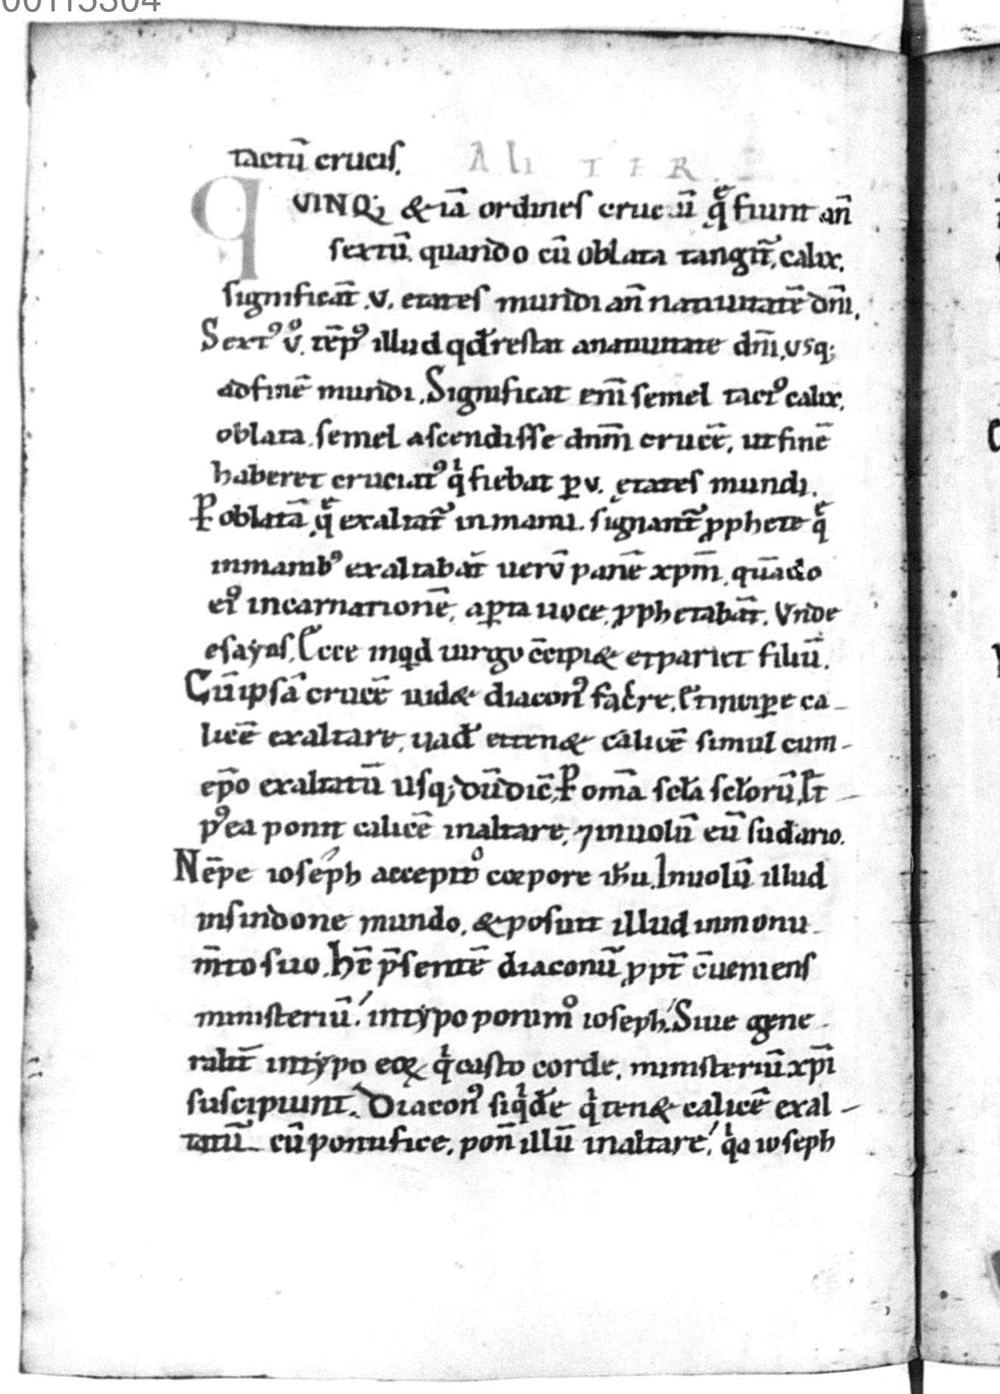 00115304
tactū crucis. ALITER.
QVINQ; & iā ordines crucīū q̄ fiunt añ
sextū. quando cū oblata tangit̄ calix.
significāt .v. etates mundi añ natiuitatē dñi.
Sextꝰ v̊. tēpꝰ illud qđ restat anatiuitate dñi, usq;
adfinē mundi. Significat enī semel tactꝰ calix.
oblata. semel ascendisse dnm̄ crucē. ut finē
haberet cruciatꝰ qͥ fiebat ꝑ .v. ętates mundi.
P oblatā q̄ exaltat̄ inmanu. signant̄ ꝓphete q̄
inmanibꝰ exaltabāt uerū panē xpm̄, quādo
eiꝰ incarnationē, aꝑta uoce, ꝓphetabāt. Vnde
esayas. Ecce inqđ uirgo c̄cipi& et pariet filiū.
Cū ipsā crucē uid& diaconꝰ fac̄re. & incipe ca-
licē exaltare, uađ et ten& calicē simul cum-
ep̄o exaltatū usq; dū dic̄, P omā scła scłorū. &
pꝰea ponit calicē inaltare, ⁊ inuolū eū sudario.
Nēpe ioseph accepto corpore ihu. Inuolū illud
insindone mundo, & posuit illud inmonu-
m̄to suo. H̄c p̄sentē diaconū ꝓpt̄ c̄ueniens
ministeriū. intypo ponimꝰ ioseph. Siue gene-
ralit̄ intypo eoꝝ qͥ casto corde, ministeriū xp̄i
suscipiunt. Diaconꝰ siqͥdē qͥ ten& calicē exal-
tatū cū pontifice, poñ illū inaltare. qͥa ioseph